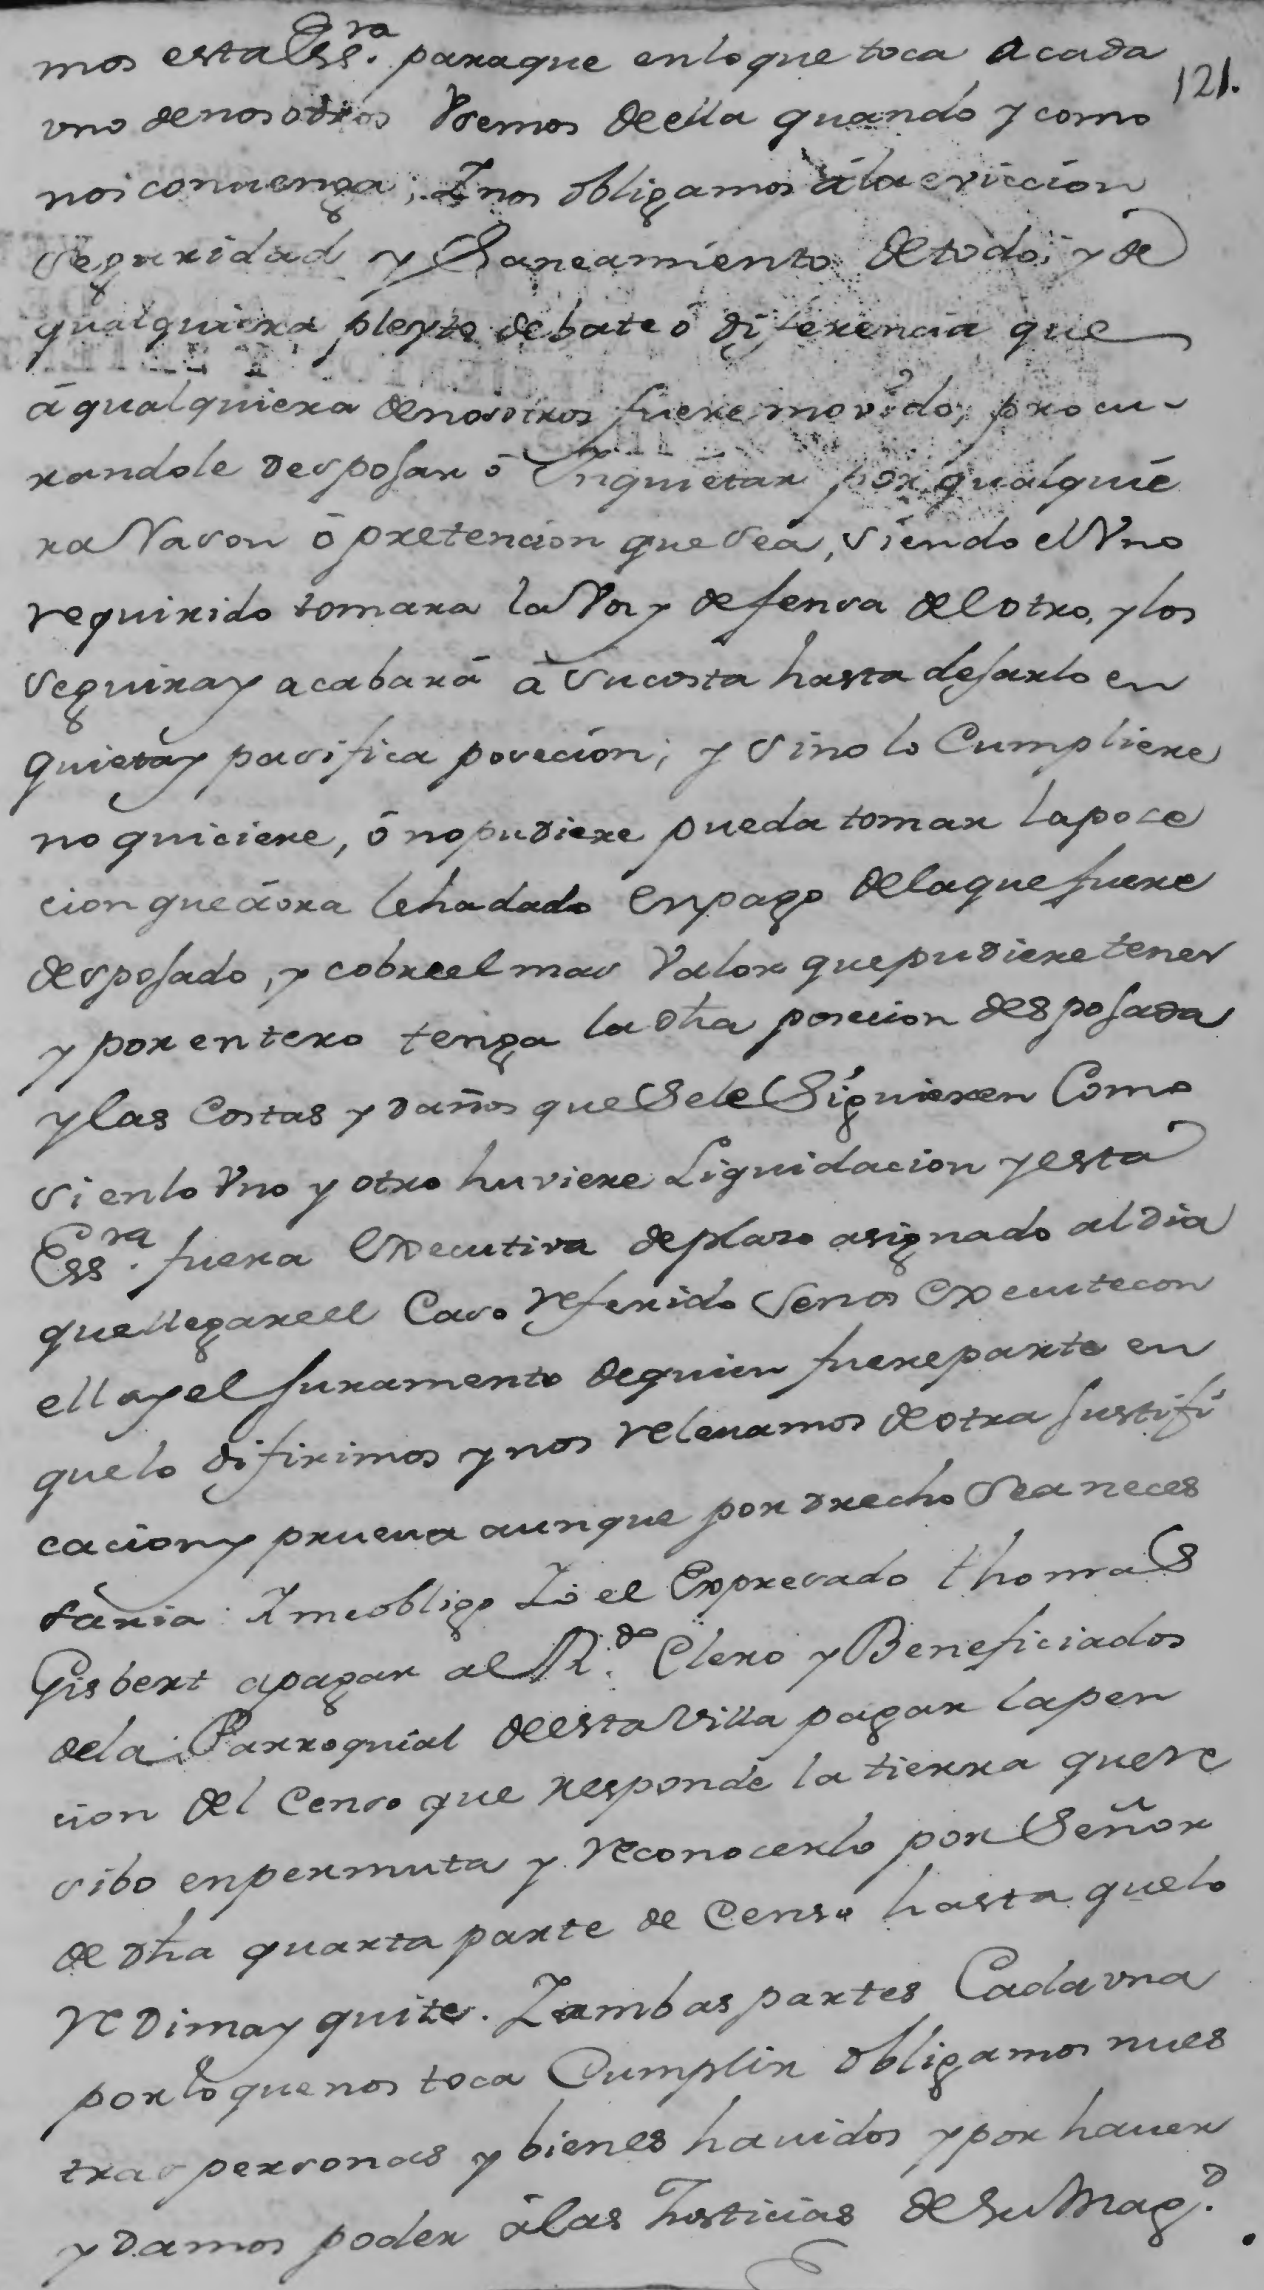 mos esta Ess.ra paraque enloque toca a cada
121.
vno denosotros Vsemos deella quando y como
nos conuenga; Y nos obligamos á la eviccion
seguridad y Saneamiento detodo, y de
qualquiera pleyto debate ó diferencia que
á qualquiera denosotros fuere movido, procu-
randole desposar ó Inquietar por qualquie
ra Rason ó pretencion que sea, siendo el Vno
requirido tomara la Vos y defensa del otro, y los
seguira y acabará á su costa hasta desarlo en
quieta y pasifica posecion; y sino lo Cumpliere
no quiciere, ó no pudiere pueda tomar lapoce
cion que áora lehadado en pago delaque fuere
desposado, y cobre el mas Valor que pudiere tener
y por entero tenga la dha posecion desposada
y las Costas y daños que Sele Siguieren Como
si enlo Vno y otro huviere Liquidacion y esta
Ess.ra fuera executiva deplaso asignado al dia
que llegare el Caso referido senos execute con
ella y el Juramento dequien fuere parte en
que lo difirimos y nos relevamos de otra Justifi
cacion y prueva aunque por drecho sea neces
saria: Y me obligo Yó el Expresado Thomas
Gisbert apagar al R.do Clero y Beneficiados
dela Parroquial deesta Villa pagar la pen
cion del Censo que responde la tierra que re
sibo en permuta y reconocerlo por Señor
de dha quarta parte de Censo hasta que lo
redima y quite. Y ambas partes Cada vna
por lo que nos toca Cumplir obligamos nues
tras personas y bienes hauidos y por hauer
y damos poder á las Justicias de Su Mag.d